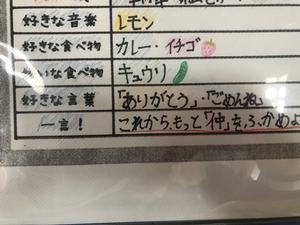 好きな音楽 レモン
好きな食べ物 カレー・イチゴ
いな食べ物 キュウリ
好きな言葉 「ありがとう」・「ごめんね」
一言！ これから、もっと「仲」を、ふかめよ